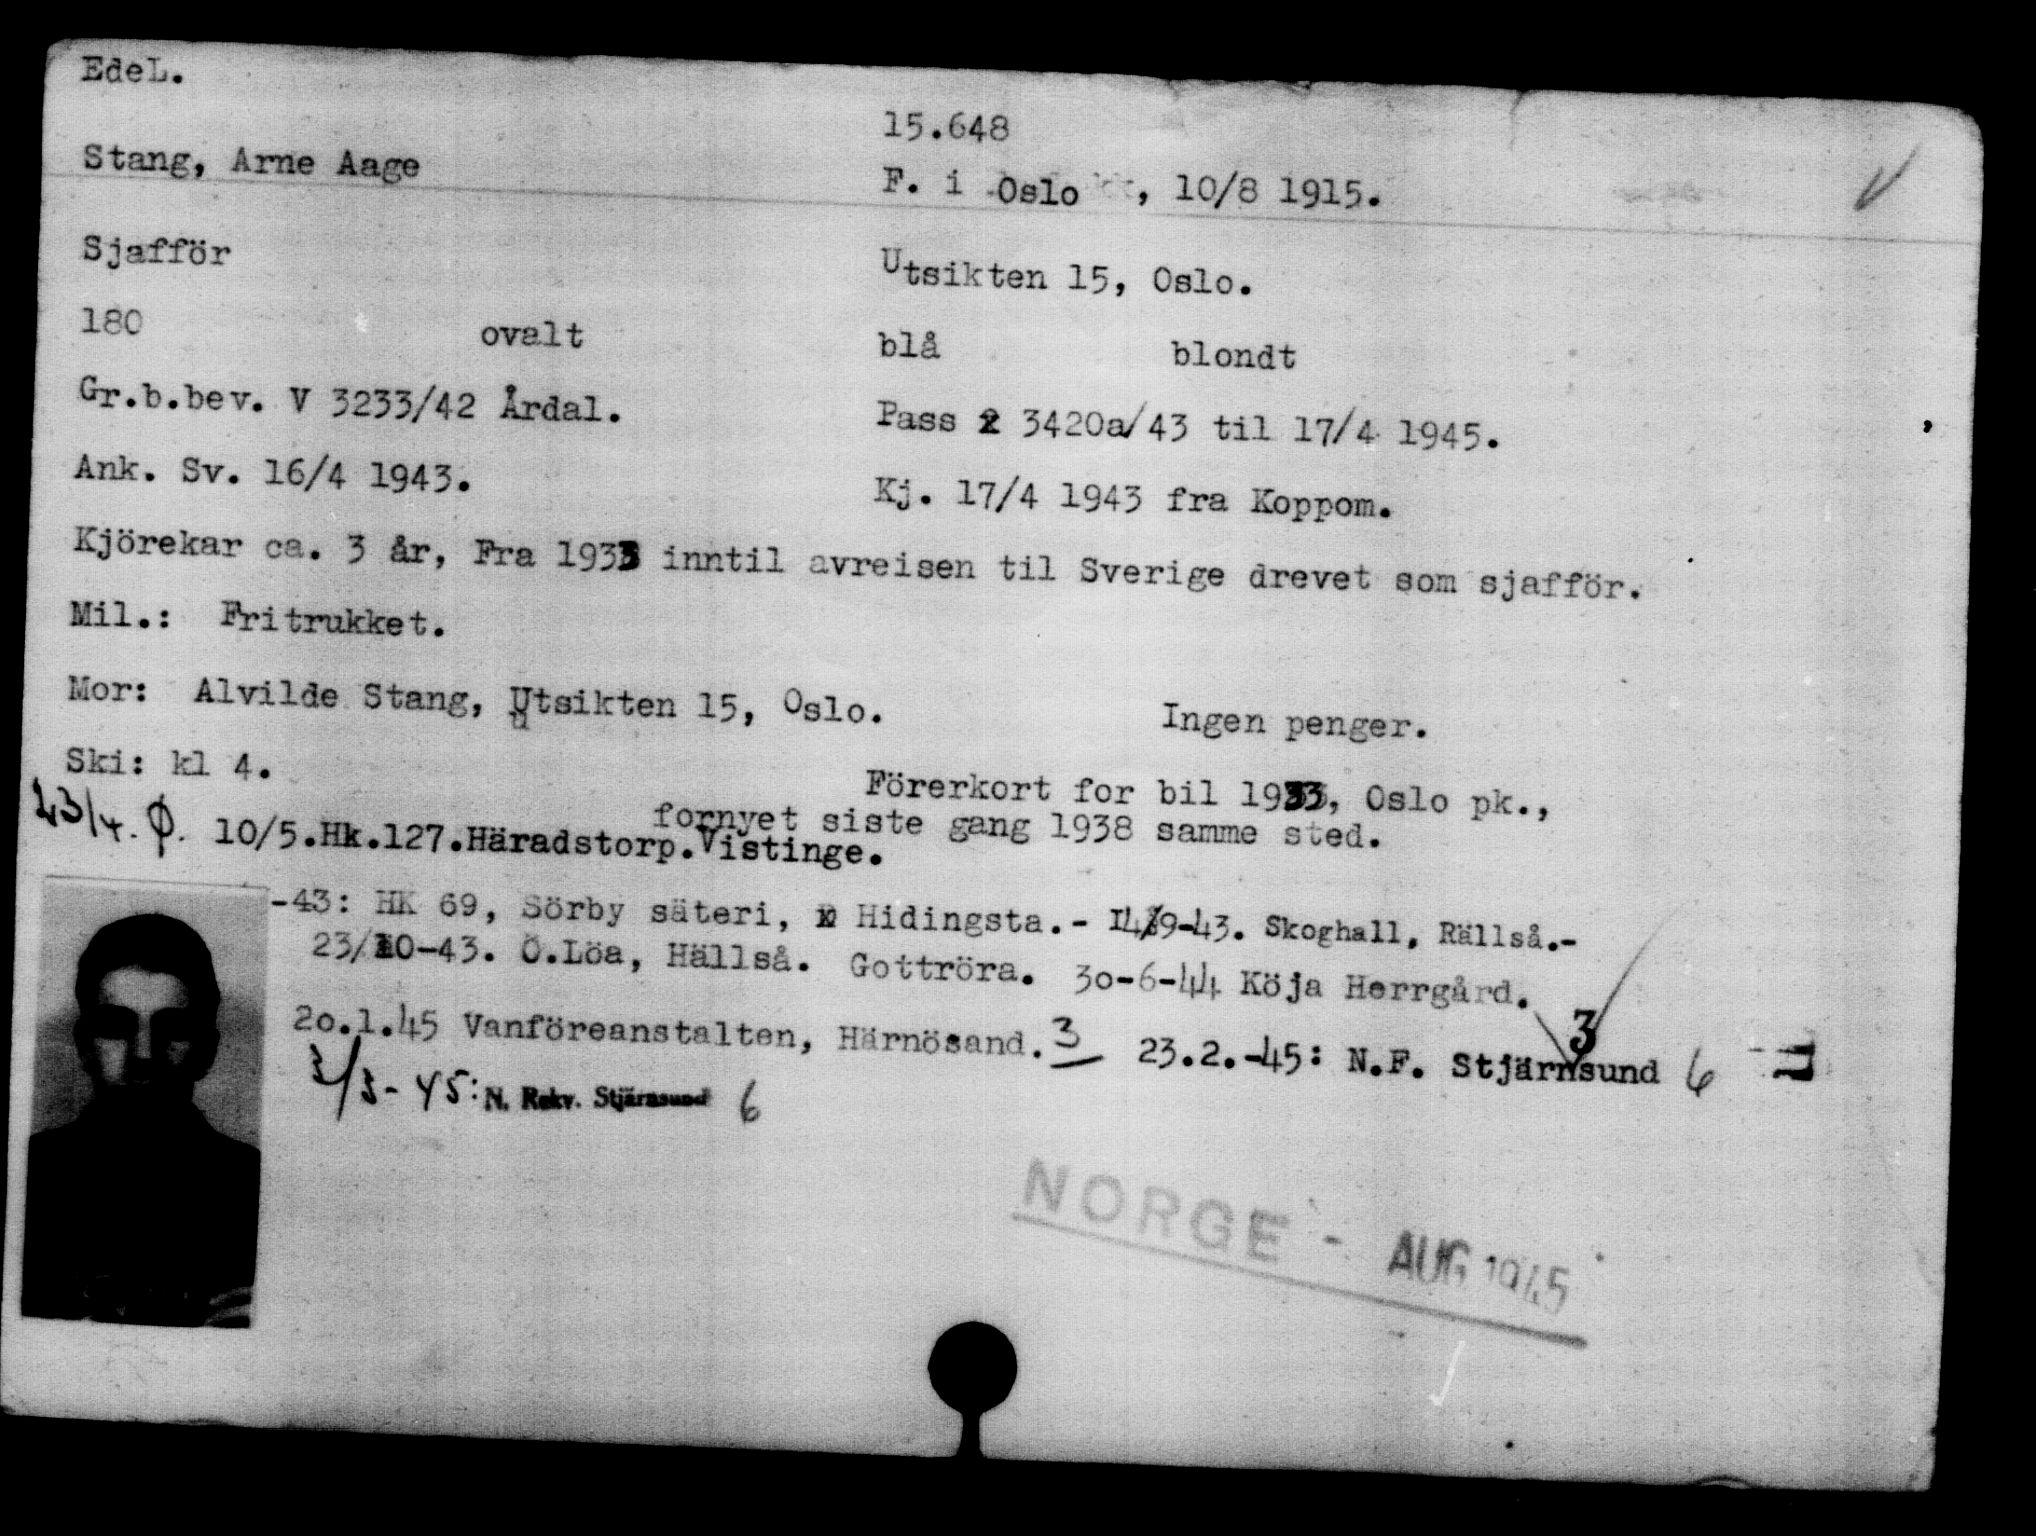 EdeL.
15.648
Stang, Arne Aage
F. i Oslo , 10/8 1915.
Sjafför
Utsikten 15, Oslo.
180 ovalt blå blondt
Gr.b.bev. V 3233/42 Årdal.
Pass 2 3420a/43 til 17/4 1945.
Ank. Sv. 16/4 1943.
Kj. 17/4 1943 fra Koppom.
Kjörekar ca. 3 år, Fra 1933 inntil avreisen til Sverige drevet som sjafför.
Mil.: Fritrukket.
Mor: Alvilde Stang, Utsikten 15, Oslo. Ingen penger.
Ski: kl 4.
Förerkort for bil 1933, Oslo pk.,
fornyet siste gang 1938 samme sted.
23/4. Ø. 10/5.Hk.127.Häradstorp.Vistinge.
-43: HK 69, Sörby säteri, Hidingsta.- 14/9-43. Skoghall, Rällså.-
23/10-43. Ö.Löa, Hällså. Gottröra. 30-6-44 Köja Herrgård.
20.1.45 Vanföreanstalten, Härnösand. 3 23.2.-45: N.F. Stjärnsund 6
3
3/3-45: N. Rekv. Stjärnsund 6
NORGE - AUG 1945